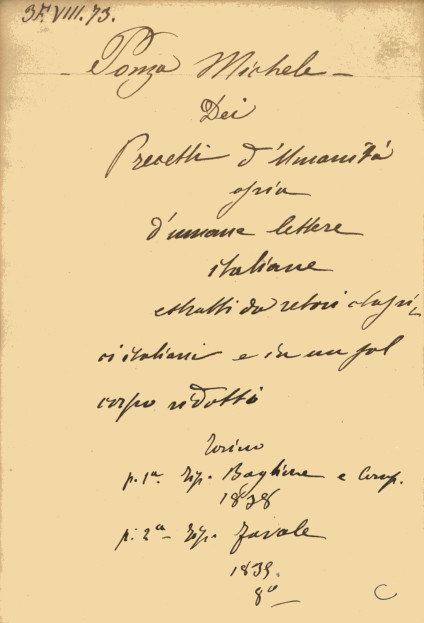 3F. VIII. 73.
Ponza Michele
Dei
Precetti d'Umanità
ossia
d'umane lettere
italiane
estratti da retori classi-
ci italiani e in un sol
corpo ridotti
Torino
p. 1ª. Tip. Baglione e Comp.
1838
p. 2ª Tip. Favale
1839.
8º